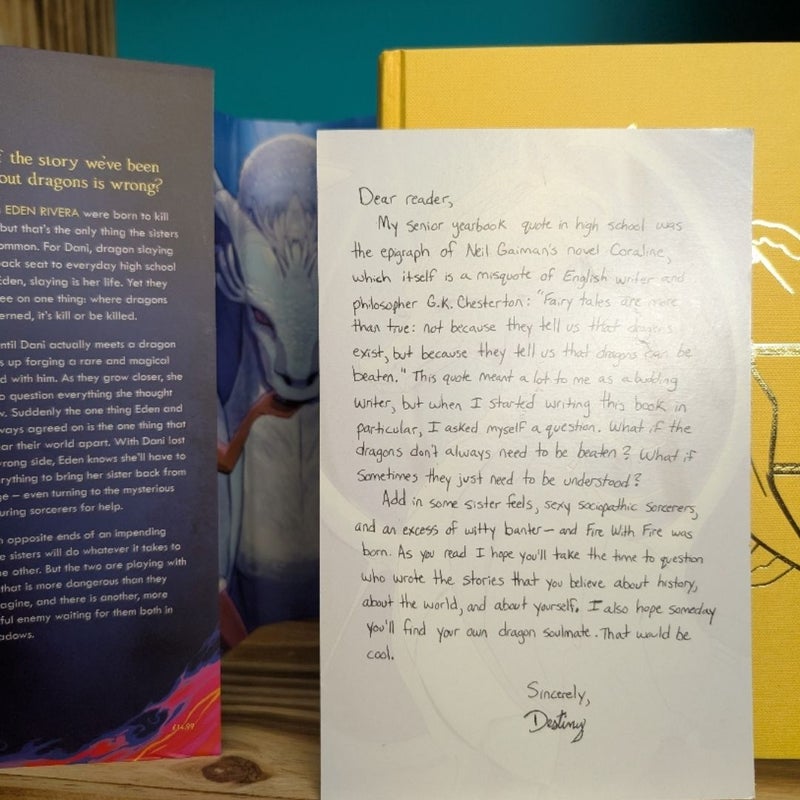 f the story we've been
out dragons is wrong?
EDEN RIVERA were born to kill
but that's the only thing the sisters
ommon. For Dani, dragon slaying
ack seat to everyday high school
Eden, slaying is her life. Yet they
ee on one thing: where dragons
erned, it's kill or be killed.
ntil Dani actually meets a dragon
s up forging a rare and magical
d with him. As they grow closer, she
o question everything she thought
w. Suddenly the one thing Eden and
ways agreed on is the one thing that
ar their world apart. With Dani lost
rong side, Eden knows she'll have to
rything to bring her sister back from
ge – even turning to the mysterious
uring sorcerers for help.
n opposite ends of an impending
e sisters will do whatever it takes to
he other. But the two are playing with
that is more dangerous than they
agine, and there is another, more
ful enemy waiting for them both in
adows.
£14.99
Dear reader,
My senior yearbook quote in high school was
the epigraph of Neil Gaiman's novel Coraline,
which itself is a misquote of English writer and
philosopher G.K. Chesterton: "Fairy tales are more
than true: not because they tell us that dragons
exist, but because they tell us that dragons can be
beaten." This quote meant a lot to me as a budding
writer, but when I started writing this book in
particular, I asked myself a question. What if the
dragons don't always need to be beaten? What if
sometimes they just need to be understood?
Add in some sister feels, sexy sociopathic sorcerers,
and an excess of witty banter— and Fire With Fire was
born. As you read I hope you'll take the time to question
who wrote the stories that you believe about history,
about the world, and about yourself. I also hope someday
you'll find your own dragon soulmate. That would be
cool.
Sincerely,
Destiny